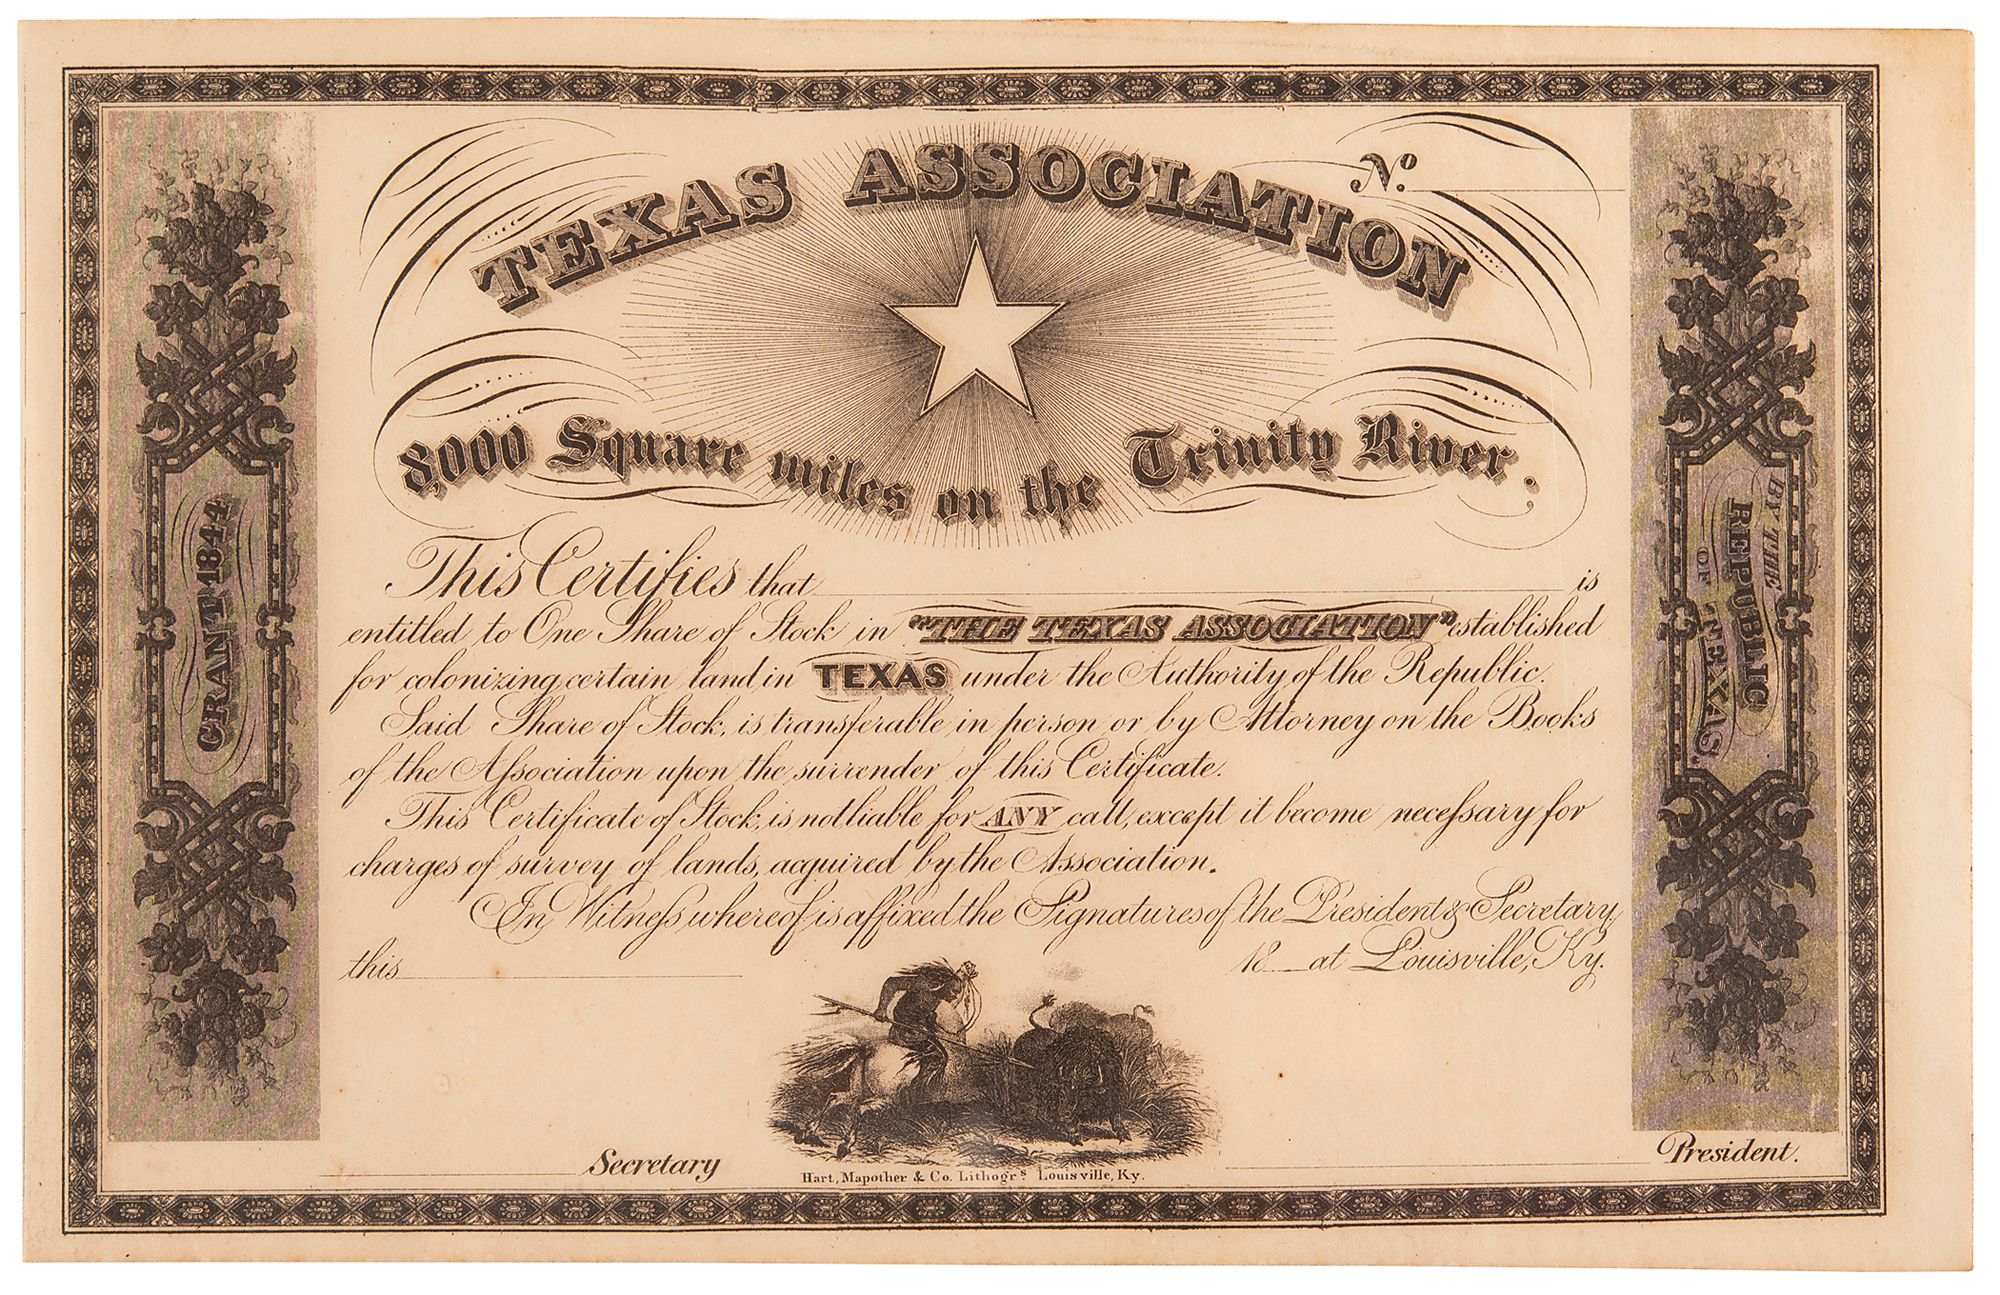 TEXAS ASSOCIATION
No.
8,000 Square miles on the Trinity River.
This Certifies that is
entitled to One Share of Stock in "THE TEXAS ASSOCIATION" established
for colonizing certain land in TEXAS under the Authority of the Republic.
Said Share of Stock, is transferable in person or by Attorney on the Books
of the Aſsociation upon the surrender of this Certificate.
This Certificate of Stock, is not liable for ANY call, except it become neceſsary for
charges of survey of lands, acquired by the Association.
In Witneſs whereof is affixed the Signatures of the President & Secretary,
this 18 at Louisville, Ky.
Secretary
President.
Hart, Mapother & Co. Lithogrs. Louisville, Ky.
GRANT 1844
BY THE
REPUBLIC
OF
TEXAS.